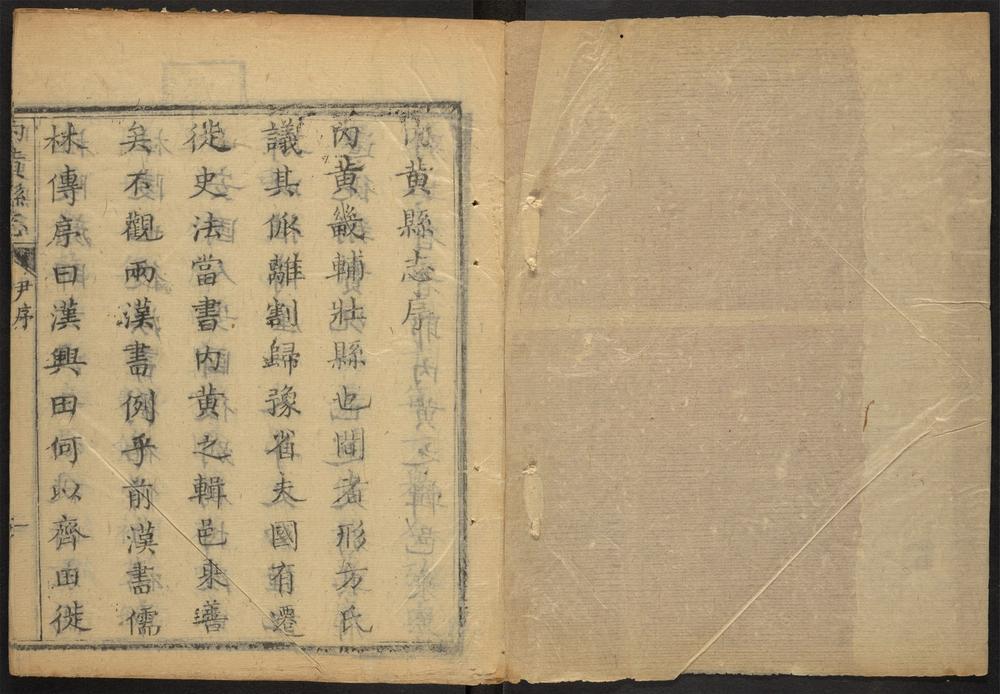 內黃縣志序
內黃畿輔壯縣也間者形方氏
議其𠂢離割歸豫省夫國有遷
徙史法當書內黃之輯邑乘譱
矣不觀兩漢書例乎前漢書儒
林傳序曰漢興田何以齊田徙
內黃縣志
尹序
一